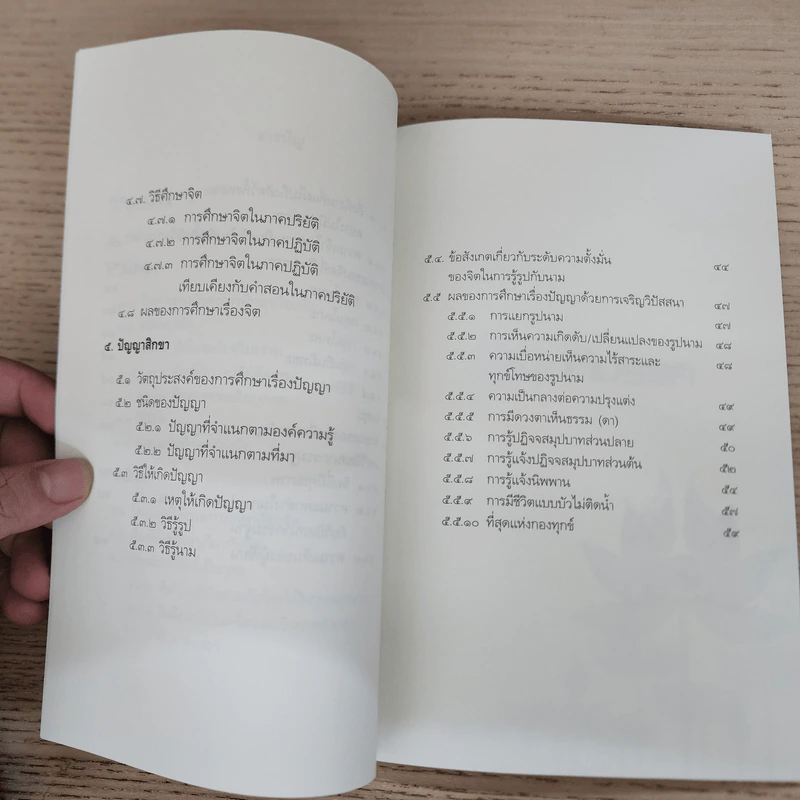 ๔.๗. วิธีศึกษาจิต
๔.๗.๑ การศึกษาจิตในภาคปริยัติ
๔.๗.๒ การศึกษาจิตในภาคปฏิบัติ
๔.๗.๓ การศึกษาจิตในภาคปฏิบัติ
เทียบเคียงกับคำสอนในภาคปริยัติ
๔.๘ ผลของการศึกษาเรื่องจิต
๕. ปัญญาสิกขา
๕.๑ วัตถุประสงค์ของการศึกษาเรื่องปัญญา
๕.๒ ชนิดของปัญญา
๕.๒.๑ ปัญญาที่จำแนกตามองค์ความรู้
๕.๒.๒ ปัญญาที่จำแนกตามที่มา
๕.๓ วิธีให้เกิดปัญญา
๕.๓.๑ เหตุให้เกิดปัญญา
๕.๓.๒ วิธีรู้รูป
๕.๓.๓ วิธีรู้นาม
๕.๔. ข้อสังเกตเกี่ยวกับระดับความตั้งมั่น
ของจิตในการรู้รูปกับนาม ๔๔
๕.๕ ผลของการศึกษาเรื่องปัญญาด้วยการเจริญวิปัสสนา ๔๗
๕.๕.๑ การแยกรูปนาม ๔๗
๕.๕.๒ การเห็นความเกิดดับ/เปลี่ยนแปลงของรูปนาม ๔๘
๕.๕.๓ ความเบื่อหน่ายเห็นความไร้สาระและ ๔๘
ทุกข์โทษของรูปนาม
๕.๕.๔ ความเป็นกลางต่อความปรุงแต่ง ๔๙
๕.๕.๕ การมีดวงตาเห็นธรรม (ตา) ๔๙
๕.๕.๖ การรู้ปฏิจจสมุปบาทส่วนปลาย ๕๐
๕.๕.๗ การรู้แจ้งปฏิจจสมุปบาทส่วนต้น ๕๒
๕.๕.๘ การรู้แจ้งนิพพาน ๕๔
๕.๕.๙ การมีชีวิตแบบบัวไม่ติดน้ำ ๕๗
๕.๕.๑๐ ที่สุดแห่งกองทุกข์ ๕๙